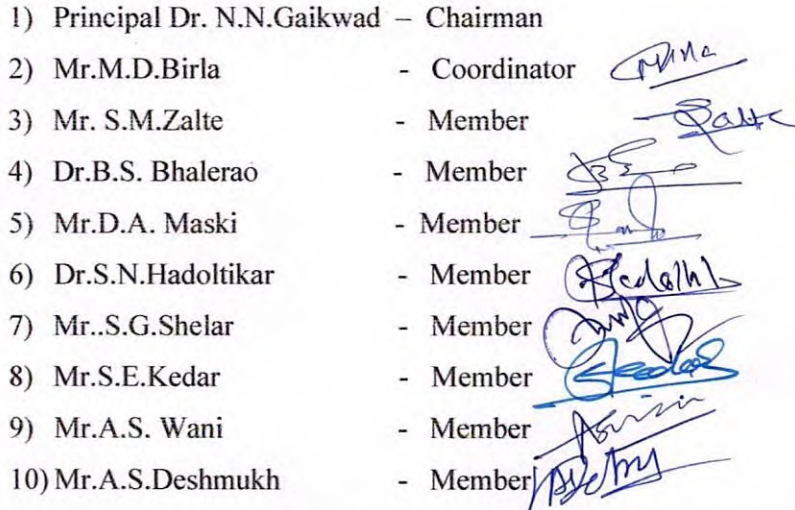 1) Principal Dr. N.N.Gaikwad – Chairman
2) Mr.M.D.Birla - Coordinator
3) Mr. S.M.Zalte - Member
4) Dr.B.S. Bhalerao - Member
5) Mr.D.A. Maski - Member
6) Dr.S.N.Hadoltikar - Member
7) Mr..S.G.Shelar - Member
8) Mr.S.E.Kedar - Member
9) Mr.A.S. Wani - Member
10) Mr.A.S.Deshmukh - Member